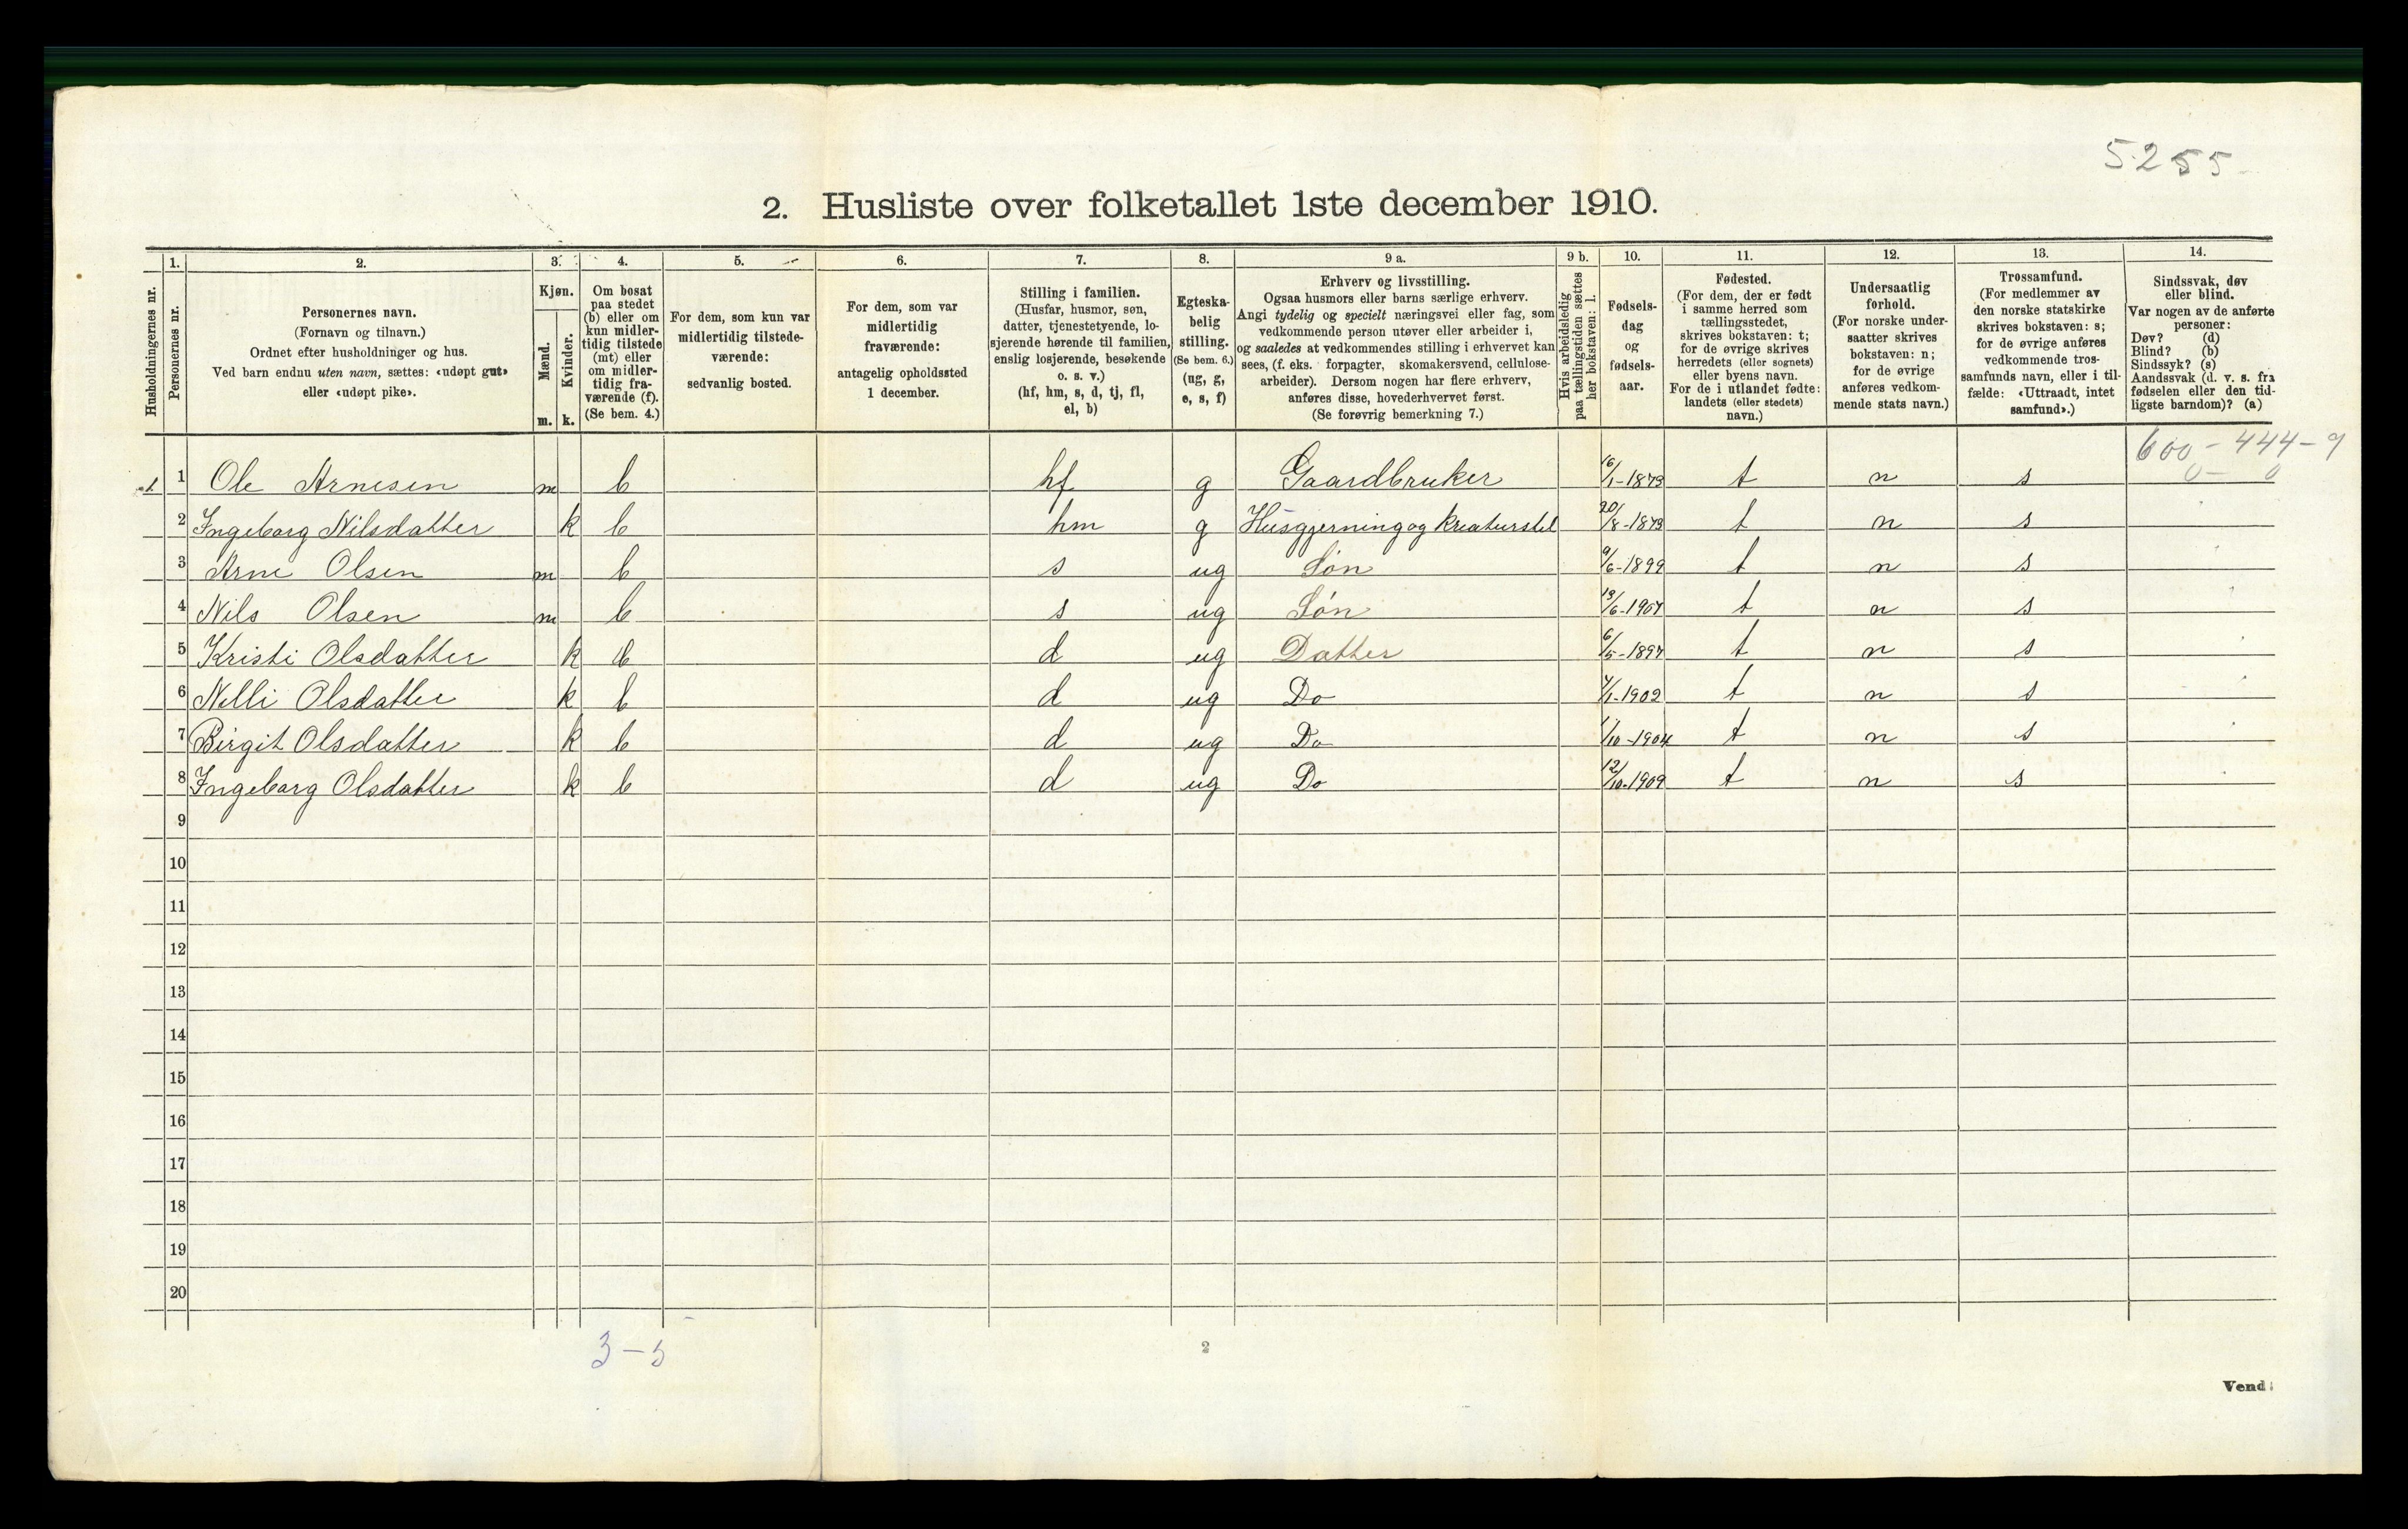 5255
2. Husliste over folketallet 1ste december 1910.
1. 2. 3. 4. 5. 6. 7. 8. 9 a. 9 b. 10. 11. 12. 13. 14.
Husholdningernes nr.
Personernes nr.
Personernes navn.
(Fornavn og tilnavn.)
Ordnet efter husholdninger og hus.
Ved barn endnu uten navn, sættes: «udøpt gut»
eller «udøpt pike».
Kjøn.
Mænd.
Kvinder.
m. k.
Om bosat
paa stedet
(b) eller om
kun midler-
tidig tilstede
(mt) eller
om midler-
tidig fra-
værende (f).
(Se bem. 4.)
For dem, som kun var
midlertidig tilstede-
værende:
sedvanlig bosted.
For dem, som var
midlertidig
fraværende:
antagelig opholdssted
1 december.
Stilling i familien.
(Husfar, husmor, søn,
datter, tjenestetyende, lo-
sjerende hørende til familien,
enslig losjerende, besøkende
o. s. v.)
(hf, hm, s, d, tj, fl,
el, b)
Egteska-
belig
stilling.
(Se bem. 6.)
(ug, g,
e, s, f)
Erhverv og livsstilling.
Ogsaa husmors eller barns særlige erhverv.
Angi tydelig og specielt næringsvei eller fag, som
vedkommende person utøver eller arbeider i,
og saaledes at vedkommendes stilling i erhvervet kan
sees, (f. eks. forpagter, skomakersvend, cellulose-
arbeider). Dersom nogen har flere erhverv,
anføres disse, hovederhvervet først.
(Se forøvrig bemerkning 7.)
Hvis arbeidsledig
paa tællingstiden sættes
her bokstaven: l.
Fødsels-
dag
og
fødsels-
aar.
Fødested.
(For dem, der er født
i samme herred som
tællingsstedet,
skrives bokstaven: t;
for de øvrige skrives
herredets (eller sognets)
eller byens navn.
For de i utlandet fødte:
landets (eller stedets)
navn.)
Undersaatlig
forhold.
(For norske under-
saatter skrives
bokstaven: n;
for de øvrige
anføres vedkom-
mende stats navn.)
Trossamfund.
(For medlemmer av
den norske statskirke
skrives bokstaven: s;
for de øvrige anføres
vedkommende tros-
samfunds navn, eller i til-
fælde: «Uttraadt, intet
samfund».)
Sindssvak, døv
eller blind.
Var nogen av de anførte
personer:
Døv? (d)
Blind? (b)
Sindssyk? (s)
Aandssvak (d. v. s. fra
fødselen eller den tid-
ligste barndom)? (a)
600 - 444 - 9
0 - 0
1 1 Ole Arnesen m b hf g Gaardbruker 16/1-1873 t n s
2 Ingeborg Nilsdatter k b hm g Husgjerning og kreaturstel 20/8-1873 t n s
3 Arne Olsen m b s ug Søn 9/6-1899 t n s
4 Nils Olsen m b s ug Søn 13/6-1907 t n s
5 Kristi Olsdatter k b d ug Datter 6/5-1897 t n s
6 Nelli Olsdatter k b d ug Do 7/1-1902 t n s
7 Birgit Olsdatter k b d ug Do 1/10-1904 t n s
8 Ingeborg Olsdatter k b d ug Do 12/10-1909 t n s
9
10
11
12
13
14
15
16
17
18
19
20
3-5
2
Vend!